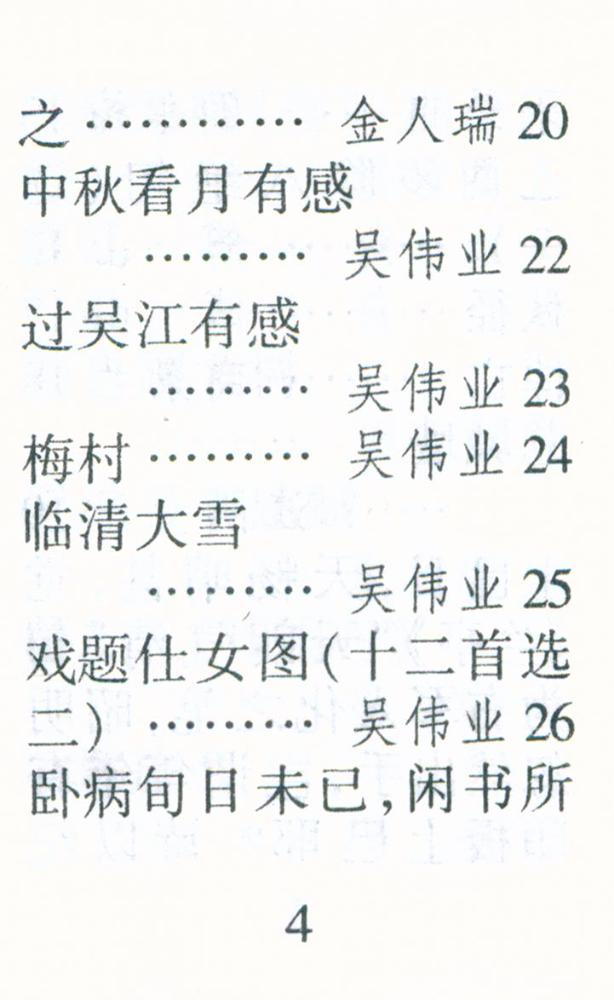 之………… 金人瑞 20
中秋看月有感
……… 吴伟业 22
过吴江有感
……… 吴伟业 23
梅村……… 吴伟业 24
临清大雪
……… 吴伟业 25
戏题仕女图(十二首选
二) ……… 吴伟业 26
卧病旬日未已,闲书所
4